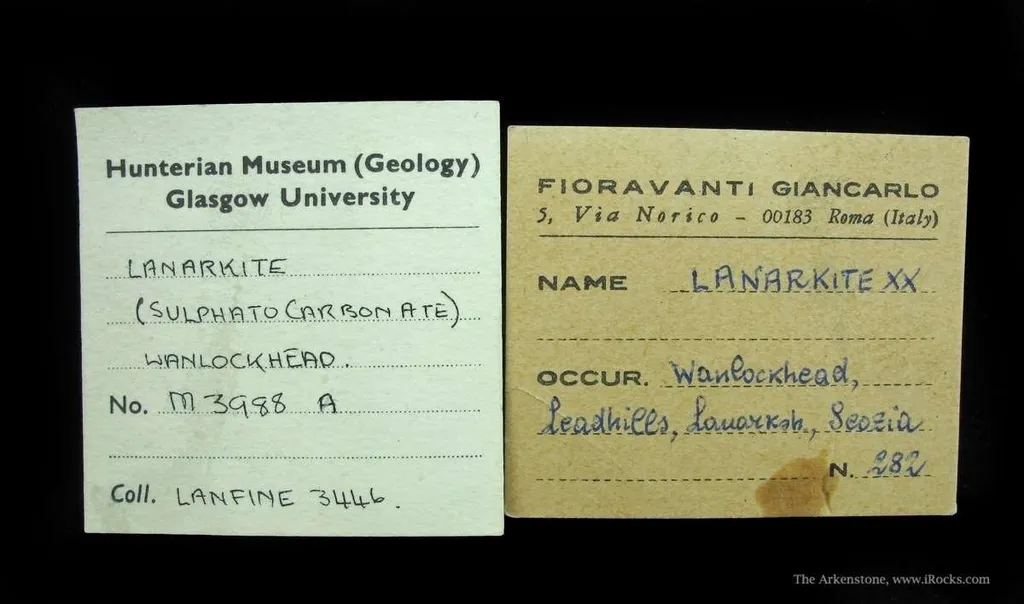 Hunterian Museum (Geology)
Glasgow University
LANARKITE
(SULPHATO CARBONATE)
WANLOCKHEAD.
No. M 3988 A
Coll. LANFINE 3446.
FIORAVANTI GIANCARLO
5, Via Norico - 00183 Roma (Italy)
NAME LANARKITE XX
OCCUR. Wanlockhead,
Leadhills, Lanarksh, Scozia
N. 282
The Arkenstone, www.iRocks.com